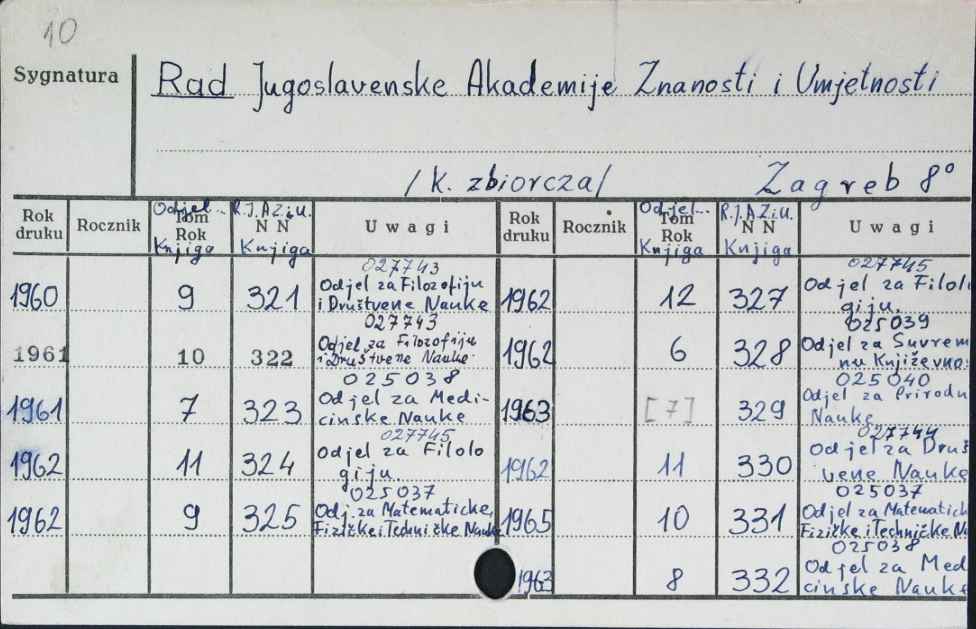 10
Sygnatura
Rad Jugoslavenske Akademije Znanosti i Umjetnosti
/k. zbiorcza/ Zagreb 8°
Rok druku Rocznik Odjel... Tom Rok Knjiga R.J.A.Z.i.U. N N Knjiga Uwagi Rok druku Rocznik Odjel... Tom Rok Knjiga R.J.A.Z.i.U. N N Knjiga Uwagi
027743
1960 9 321 Odjel za Filozofiju
i Društvene Nauke
027743
1961 10 322 Odjel za Filozofiju
i Društvene Nauke
025038
1961 7 323 Odjel za Medi-
cinske Nauke
027745
1962 11 324 Odjel za Filolo
giju.
025037
1962 9 325 Odj. za Matematicke,
Fizičke i Tedničke Nauke
027745
1962 12 327 Odjel za Filol
giju.
025039
1962 6 328 Odjel za Suvrem
nu Književno
025040
1963 [7] 329 Odjel za Prirodn
Nauke
027744
1962 11 330 Odjel za Druš
vene Nauke
025037
1965 10 331 Odjel za Matematič
Fizičke i Techničke N
025038
1963 8 332 Odjel za Med
cinske Nauke